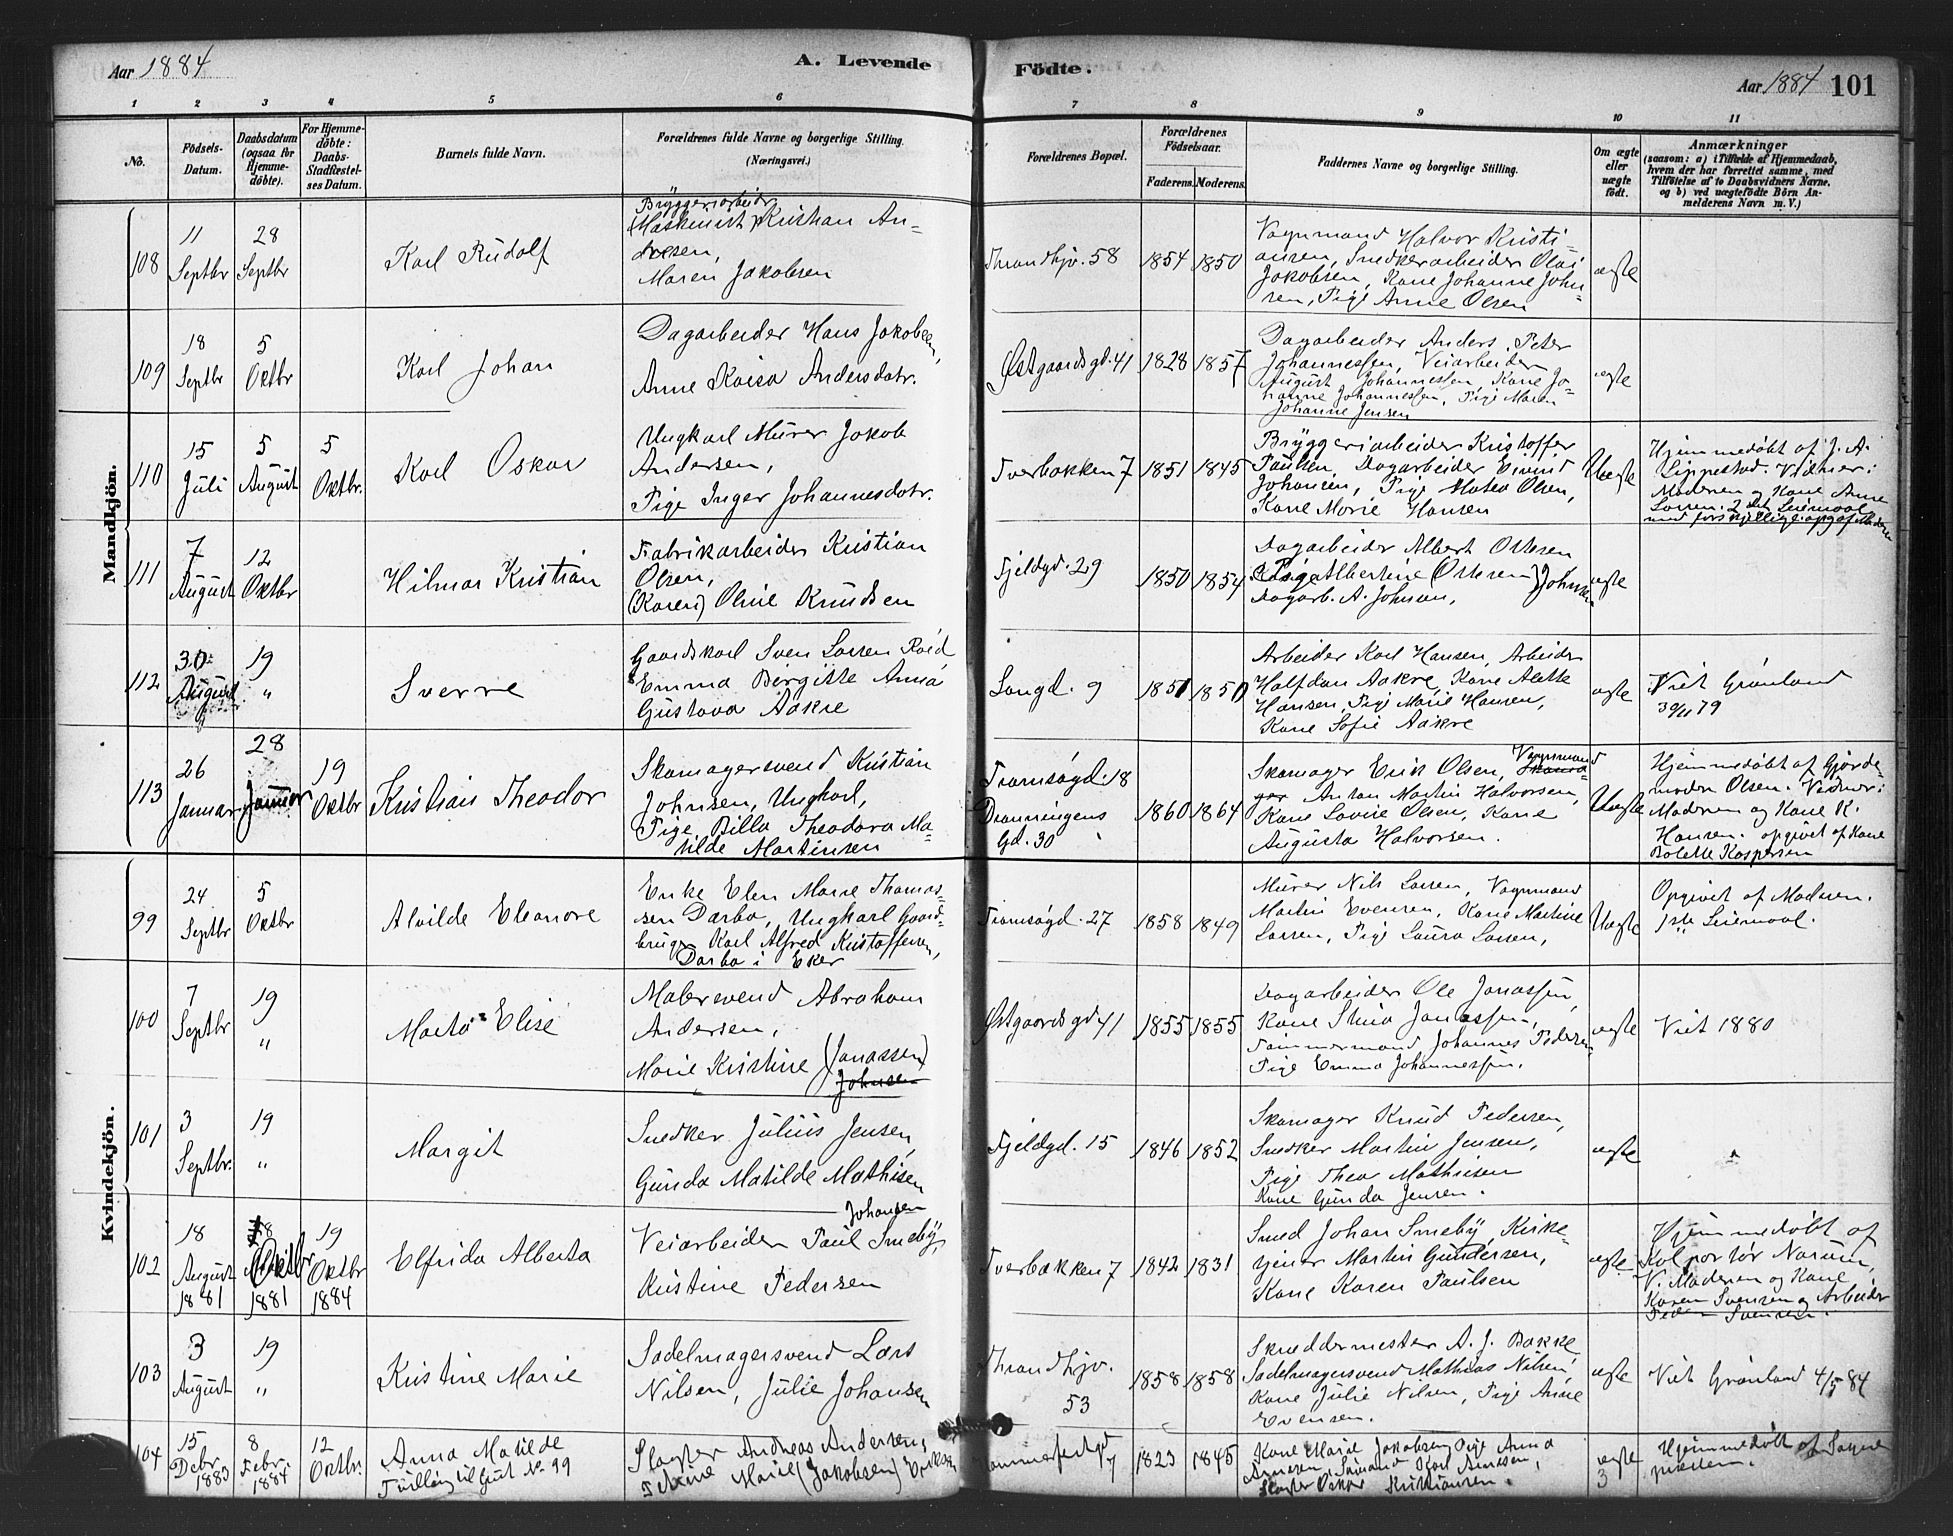 Aar 1884
A. Levende
Födte.
Aar 1884 101
1 2 3 4 5 6 7 8 9 10 11
No.
Födsels-
Datum.
Daabsdatum
(ogsaa for
Hjemme-
døbte).
For Hjemme-
döbte:
Daabs-
Stadfæstel-
ses Datum.
Barnets fulde Navn.
Forældrenes fulde Navne og borgerlige Stilling.
(Næringsvei.)
Forældrenes Bopæl.
Forældrenes
Födselsaar.
Faderens. Moderens.
Faddernes Navne og borgerlige Stilling.
Om ægte
eller
uægte
født.
Anmærkninger
(saasom: a) i Tilfælde af Hjemmedaab,
hvem der har forrettet samme, med
Tilföielse af to Daabsvidners Navne,
og b) ved uægtefödte Börn An-
melderens Navn m. V.)
Mandkjön.
108
11
Septbr
28
Septbr
Karl Rudolf
Bryggeriarbeider
(Maskinist) Kristian An-
dresen,
Maren Jakobsen
Thrandhjv. 58
1854
1850
Vognmand Halvor Kristi-
ansen, Snedkerarbeider Olai
Jakobsen, Kone Johanne John-
sen, Pige Anne Olsen
ægte
109
18
Septbr
5
Oktbr
Karl Johan
Dagarbeider Hans Jakobsen,
Anne Kaisa Andersdatr.
Østgaardsgd. 41
1828
1857
Dagarbeider Anders Peter
Johannessen, Veiarbeider
August Johannessen, Kone Jo-
hanne Johannessen, Pige Maren
Johanne Jensen
ægte
110
15
Juli
5
August
5
Oktbr.
Karl Oskar
Ungkarl Murer Jakob
Andersen,
Pige Inger Johannesdatr.
Tverbakken 7
1851
1845
Bryggeriarbeider Kristoffer
Paulsen, Dagarbeider Eivind
Johansen, Pige Matea Olsen,
Kone Marie Hansen
Uægte
Hjemmedøbt af J. A.
Lippestad. Vidner:
Moderen og Kone Anne
Larsen. 2det Leiermaal
med forskjellige. opg. af Moderen
111
7
August
12
Oktbr
Hilmar Kristian
Fabrikarbeider Kristian
Olsen,
(Karen) Oline Knudsen
Fjeldgd. 29
1850
1854
Dagarbeider Albert Ottesen
Pige Albertine (Ottesen) Johnsen
Dagarb. A. Johnsen,
ægte
112
30
August
19
"
Sverre
Gaardskarl Sven Larsen Röed
Emma Birgitte Anna
Gustava Aakre
Langd. 9
1851
1850
Arbeider Karl Hansen, Arbeider
Halfdan Aakre, Kone Alette
Hansen, Pige Marie Hansen,
Kone Sofie Aakre
ægte
Viet Grønland
30/11 79
113
26
Januar
28
Januar
19
Oktbr
Kristian Theodor
Skomagersvend Kristian
Johnsen, Ungkarl,
Pige Billa Theodora Ma-
tilde Martinsen
Tromsøgd. 18
Dronningens
Gd. 30
1860
1864
Skomager Erik Olsen, Vognmand
Anton Martin Halvorsen,
Kone Lovise Olsen, Kone
Augusta Halvorsen.
Uægte
Hjemmedøbt af Gjorde-
moder Olsen. Vidner:
Moderen og Kone K.
Hansen. opgivet af Kone
Bolette Kaspersen
Kvindekjön.
99
24
Septbr
5
Oktbr
Alvilde Eleonore
Enke Elen Marie Thomas-
sen Darbo, Ungkarl Gaard-
bruger Karl Alfred Kristoffersen,
Darbo i Eker
Tromsøgd. 27
1858
1849
Murer Nils Larsen, Vognmand
Martin Evensen, Kone Martine
Larsen, Pige Laura Larsen,
Uægte
Opgivet af Moderen.
1ste Leiermaal.
100
7
Septbr
19
"
Marta Elise
Malersvend Abraham
Andersen,
Marie Kristine (Jonassen)
Johnsen
Østgaardsgd 41
1855
1855
Dagarbeider Ole Jonassen,
Kone Stina Jonassen,
Tømmermand Johannes Pedersen
Pige Emma Johannessen.
ægte
Viet 1880
101
3
Septbr.
19
"
Margit
Snedker Julius Jensen,
Gunda Matilde Mathisen
Fjeldgd. 15
1846
1852
Skomager Knud Pedersen,
Snedker Martin Jensen,
Pige Thea Mathisen
Kone Gunda Jensen.
ægte
102
18
August
1881
18
Oktbr
1881
19
Oktbr
1884
Elfrida Alberta
Johansen
Veiarbeider Paul Smeby,
Kristine Pedersen
Tverbakken 7
1842
1831
Smed Johan Smeby, Kirke-
tjener Martin Gundersen,
Kone Karen Paulsen
ægte
Hjemmedøbt af
Kolportør Narum,
V. Moderen og Kone
Karen Svensen og Arbeider
Peder Svensen.
103
3
August
19
"
Kristine Marie
Sadelmagersvend Lars
Nilsen, Julie Johansen
Thrandhjv.
53
1858
1858
Skreddermester A. J. Bakke
Sadelmagersvend Mathias Nilsen,
Kone Julie Nilsen, Pige Anne
Evensen.
ægte
Viet Grønland 4/5 84
104
15
Debr
1883
8
Febr.
1884
12
Oktbr.
Anna Matilde
Tvilling til Gut No 99
Slagter Andreas Andersen,
Marie (Jakobsen)
Hammerfestgd
7
1823
1845
Kone Marie Jakobsen, Pige Anna
Arnesen, Sømand Karl Arnesen,
Slagter Oskar Kristiansen.
ægte
3
Hjemmedøbt af Sogne
præsten.